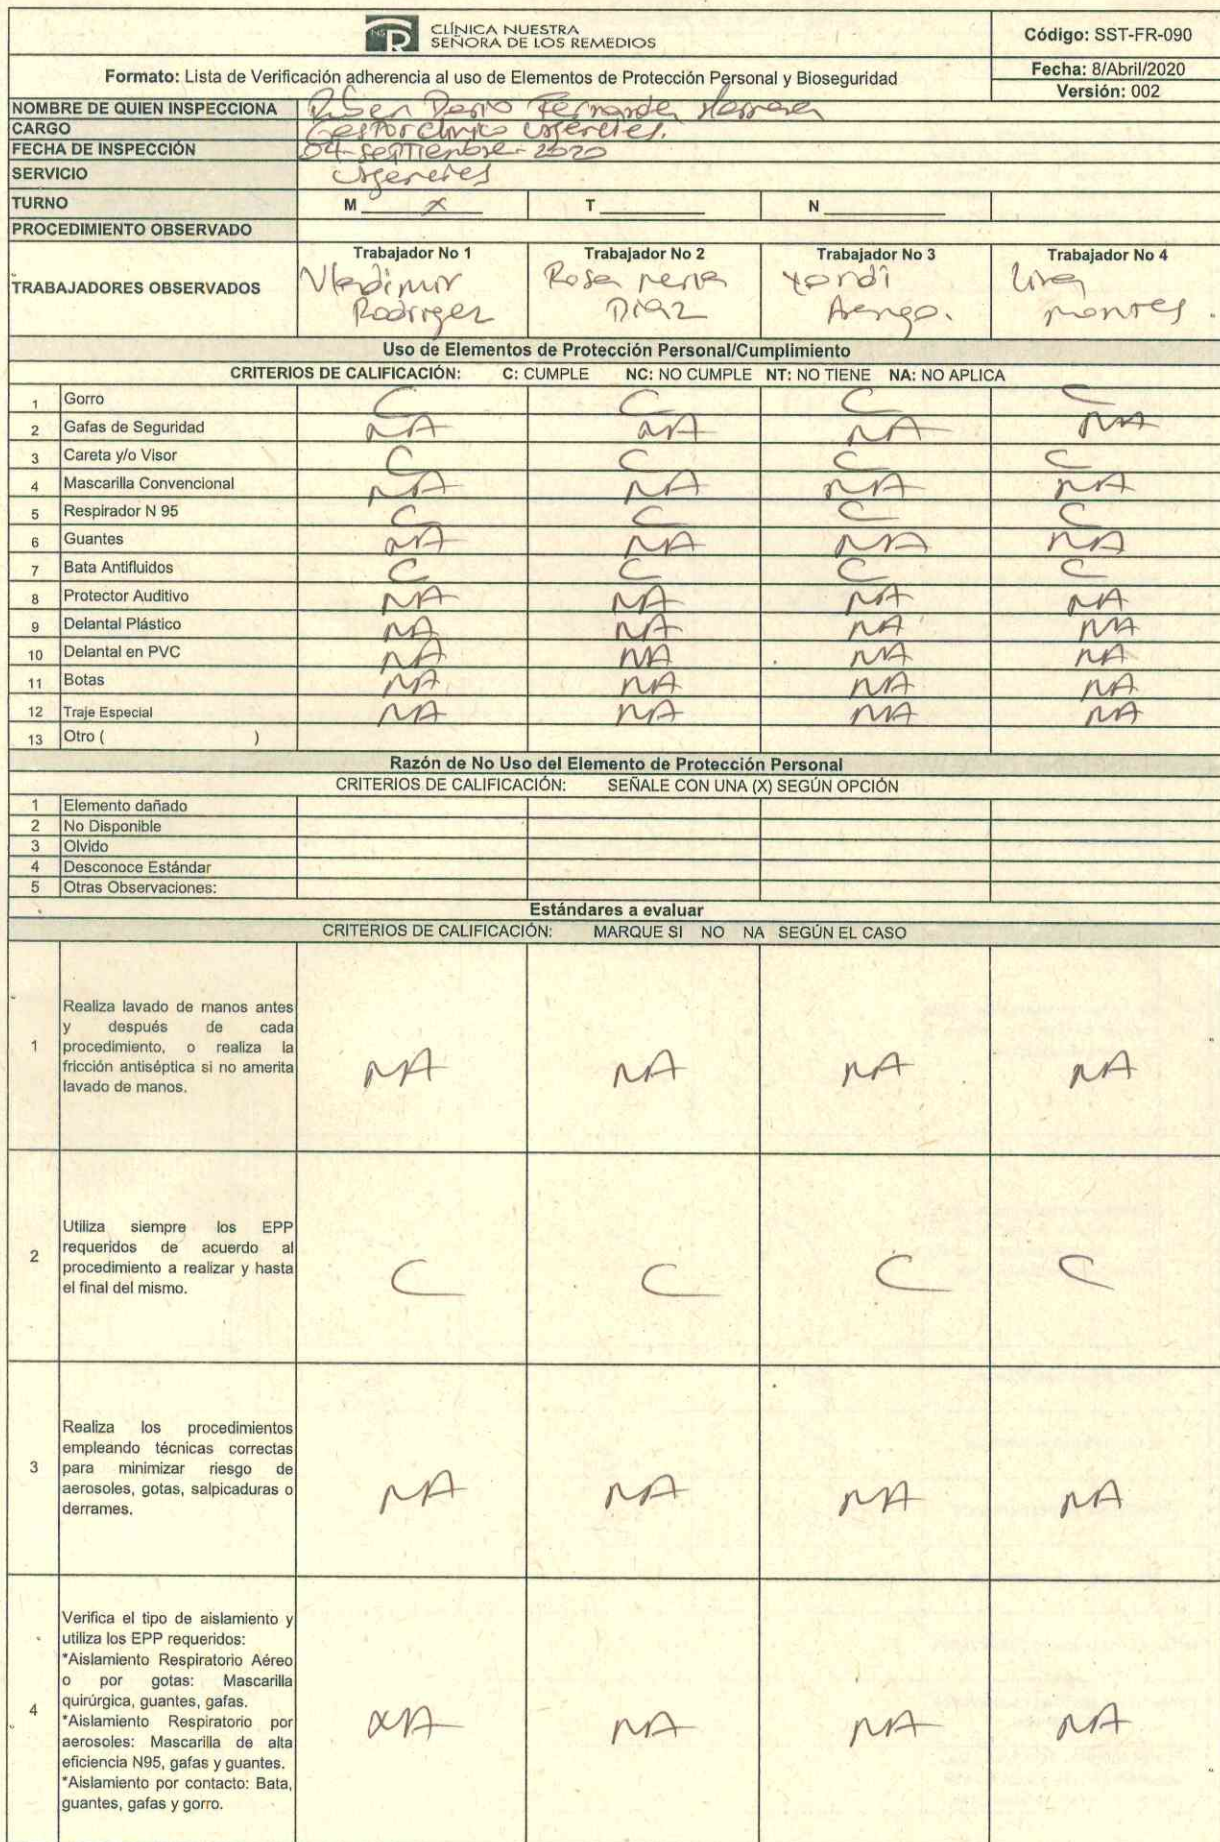 CLÍNICA NUESTRA
SEÑORA DE LOS REMEDIOS
Código: SST-FR-090
Formato: Lista de Verificación adherencia al uso de Elementos de Protección Personal y Bioseguridad
Fecha: 8/Abril/2020
Versión: 002
NOMBRE DE QUIEN INSPECCIONA Ruben Dario Fernandez Herrera
CARGO Gestor clinico urgencias.
FECHA DE INSPECCIÓN 04-septiembre-2020
SERVICIO urgencias
TURNO M x T N
PROCEDIMIENTO OBSERVADO
TRABAJADORES OBSERVADOS
Trabajador No 1 Trabajador No 2 Trabajador No 3 Trabajador No 4
Vladimir Rosa Maria Yordi
Rodriguez Diaz Arango. Montes.
Uso de Elementos de Protección Personal/Cumplimiento
CRITERIOS DE CALIFICACIÓN: C: CUMPLE NC: NO CUMPLE NT: NO TIENE NA: NO APLICA
1 Gorro C C C C
2 Gafas de Seguridad NA NA NA NA
3 Careta y/o Visor C C C C
4 Mascarilla Convencional NA NA NA NA
5 Respirador N 95 C C C C
6 Guantes NA NA NA NA
7 Bata Antifluidos C C C C
8 Protector Auditivo NA NA NA NA
9 Delantal Plástico NA NA NA NA
10 Delantal en PVC NA NA NA NA
11 Botas NA NA NA NA
12 Traje Especial NA NA NA NA
13 Otro ( )
Razón de No Uso del Elemento de Protección Personal
CRITERIOS DE CALIFICACIÓN: SEÑALE CON UNA (X) SEGÚN OPCIÓN
1 Elemento dañado
2 No Disponible
3 Olvido
4 Desconoce Estándar
5 Otras Observaciones:
Estándares a evaluar
CRITERIOS DE CALIFICACIÓN: MARQUE SI NO NA SEGÚN EL CASO
1
Realiza lavado de manos antes
y después de cada
procedimiento, o realiza la
fricción antiséptica si no amerita
lavado de manos.
NA NA NA NA
2
Utiliza siempre los EPP
requeridos de acuerdo al
procedimiento a realizar y hasta
el final del mismo.
C C C C
3
Realiza los procedimientos
empleando técnicas correctas
para minimizar riesgo de
aerosoles, gotas, salpicaduras o
derrames.
NA NA NA NA
4
Verifica el tipo de aislamiento y
utiliza los EPP requeridos:
*Aislamiento Respiratorio Aéreo
o por gotas: Mascarilla
quirúrgica, guantes, gafas.
*Aislamiento Respiratorio por
aerosoles: Mascarilla de alta
eficiencia N95, gafas y guantes.
*Aislamiento por contacto: Bata,
guantes, gafas y gorro.
NA NA NA NA